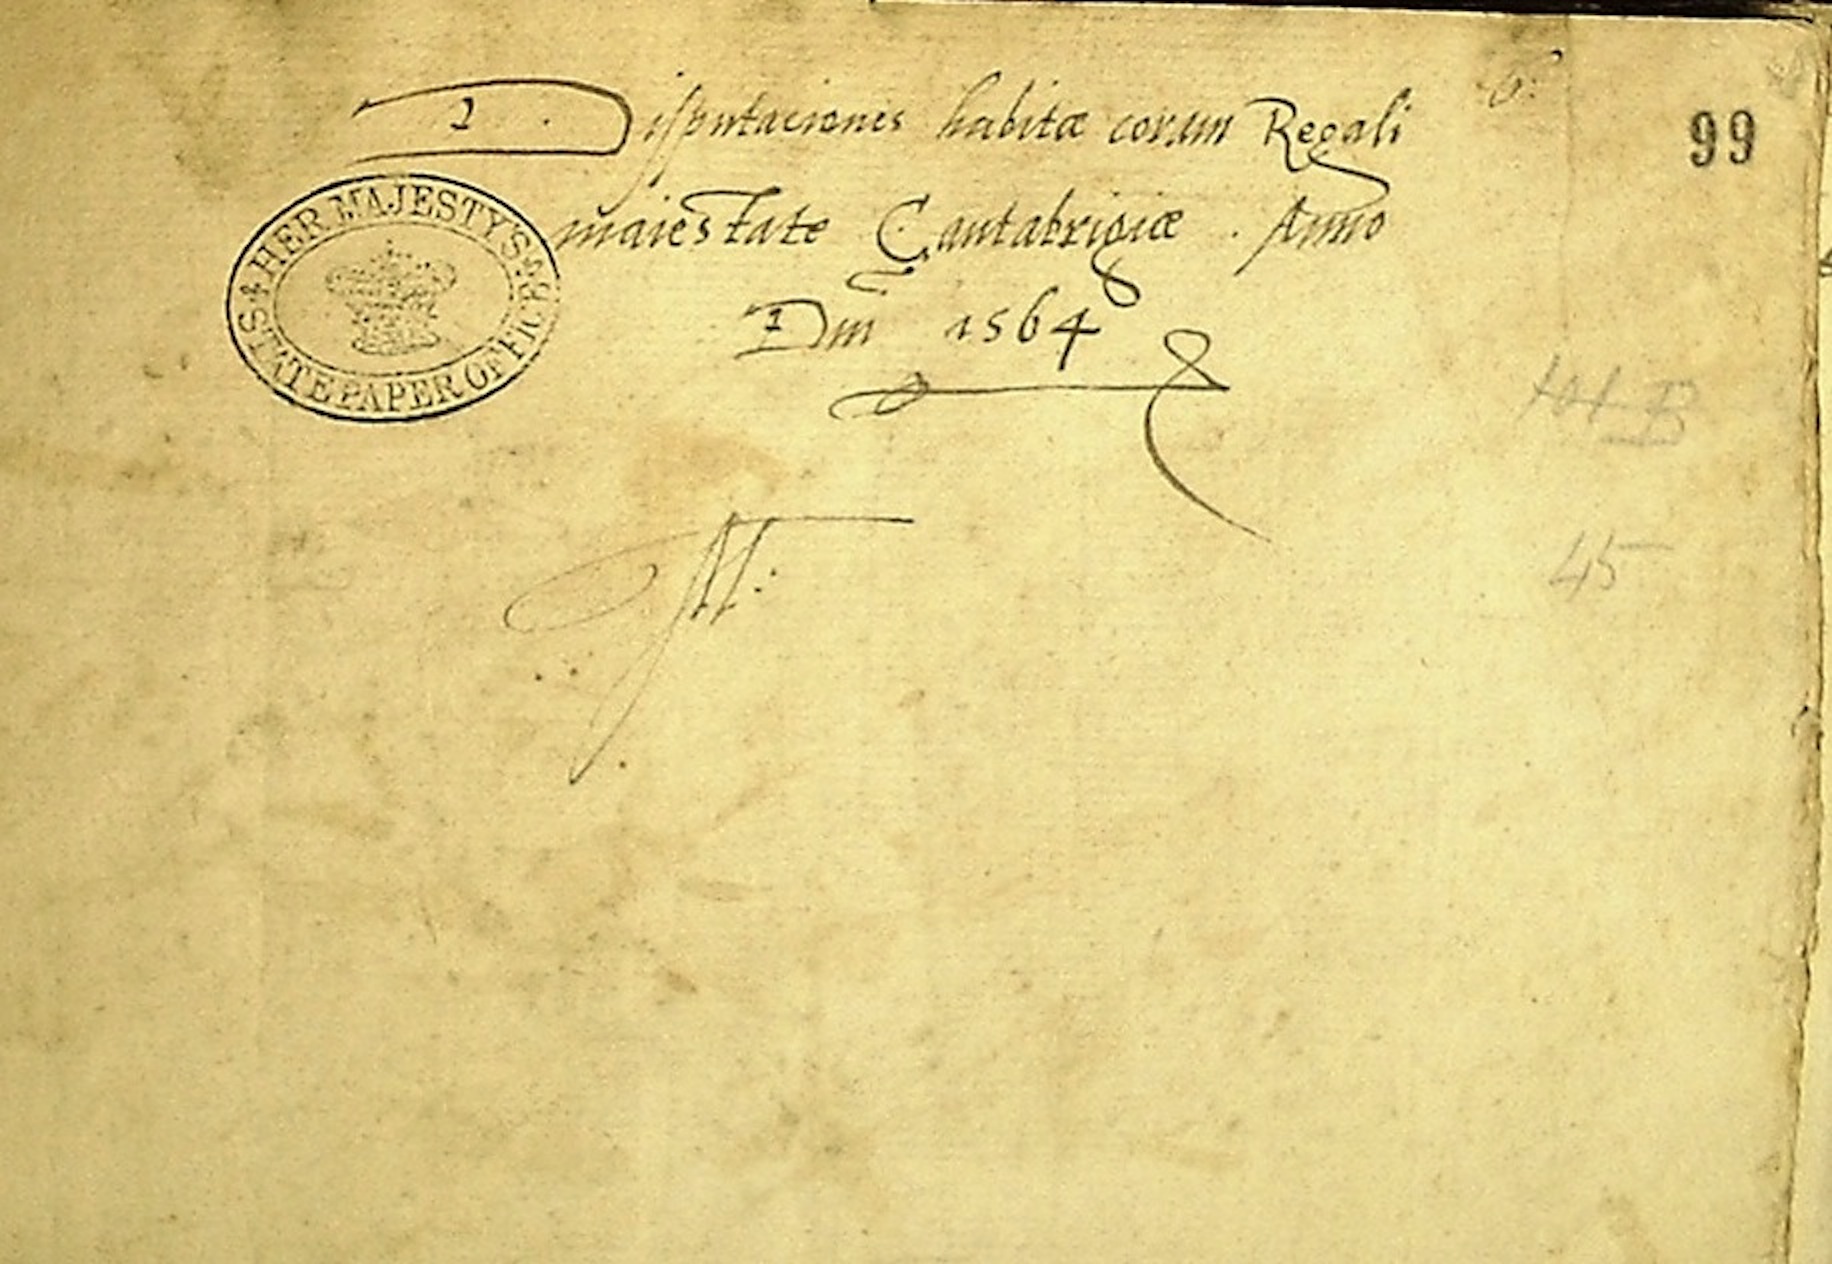 Disputaciones habitæ coram Regali
99
maiestate Cantabrigiæ . Anno
HER MAJESTY'S
STATE PAPER OFFICE
Dni 1564
45